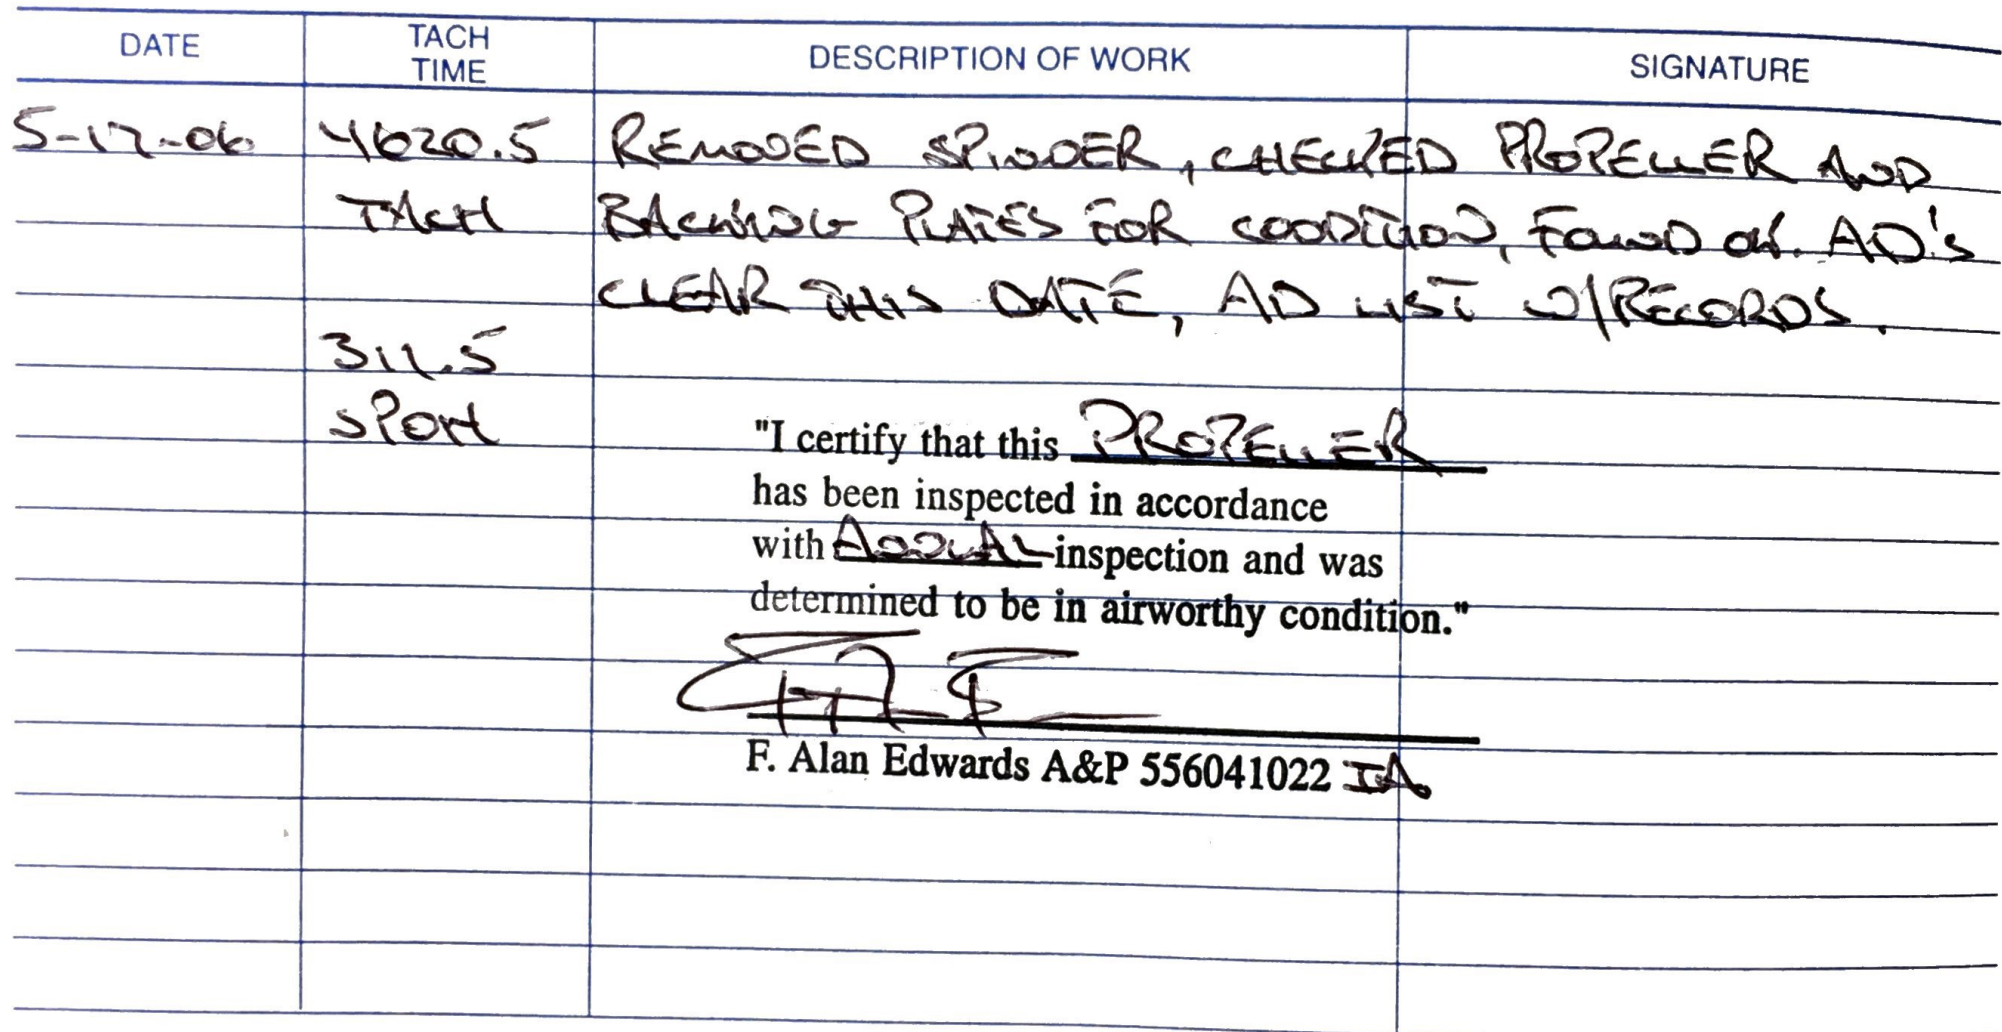 DATE TACH TIME DESCRIPTION OF WORK SIGNATURE
5-17-06 4620.5 REMOVED SPINNER, CHECKED PROPELLER AND
TACH BACKING PLATES FOR CONDITION, FOUND OK. AD'S
CLEAR THIS DATE, AD LIST W/RECORDS.
311.5
SPOH
"I certify that this PROPELLER
has been inspected in accordance
with ANNUAL inspection and was
determined to be in airworthy condition."
F. Alan Edwards A&P 556041022 IA